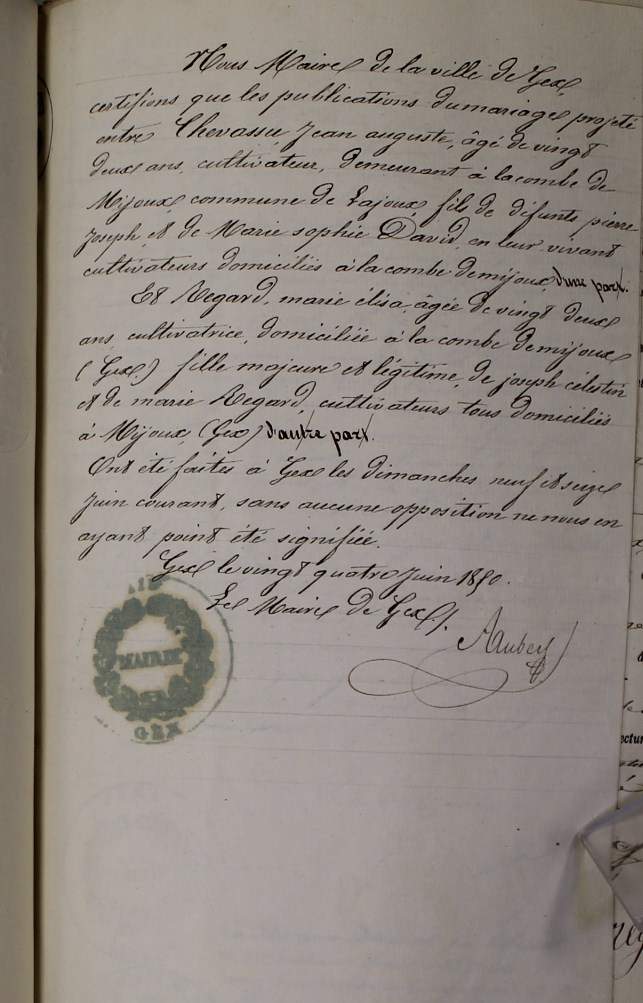 Nous Maire de la ville de Gex
certifions que les publications du mariage projeté
entre Chevassu Jean auguste, âgé de vingt
deux ans, cultivateur, demeurant à la combe de
Mijoux commune de Lajoux, fils de défunts pierre
Joseph et de Marie sophie David, en leur vivant
cultivateurs domiciliés à la combe de mijoux, d'une part.
Et Regard, marie élisa, âgée de vingt deux
ans, cultivatrice, domiciliée à la combe de mijoux
(Gex) fille majeure et légitime, de joseph célestin
et de marie Regard, cultivateurs tous domiciliés
à Mijoux, (Gex) d'autre part.
Ont été faites à Gex les dimanches neuf et seize
Juin courant, sans aucune opposition ne nous en
ayant point été signifiée.
Gex le vingt quatre Juin 1850.
Le Maire de Gex,
MAIRIE
GEX